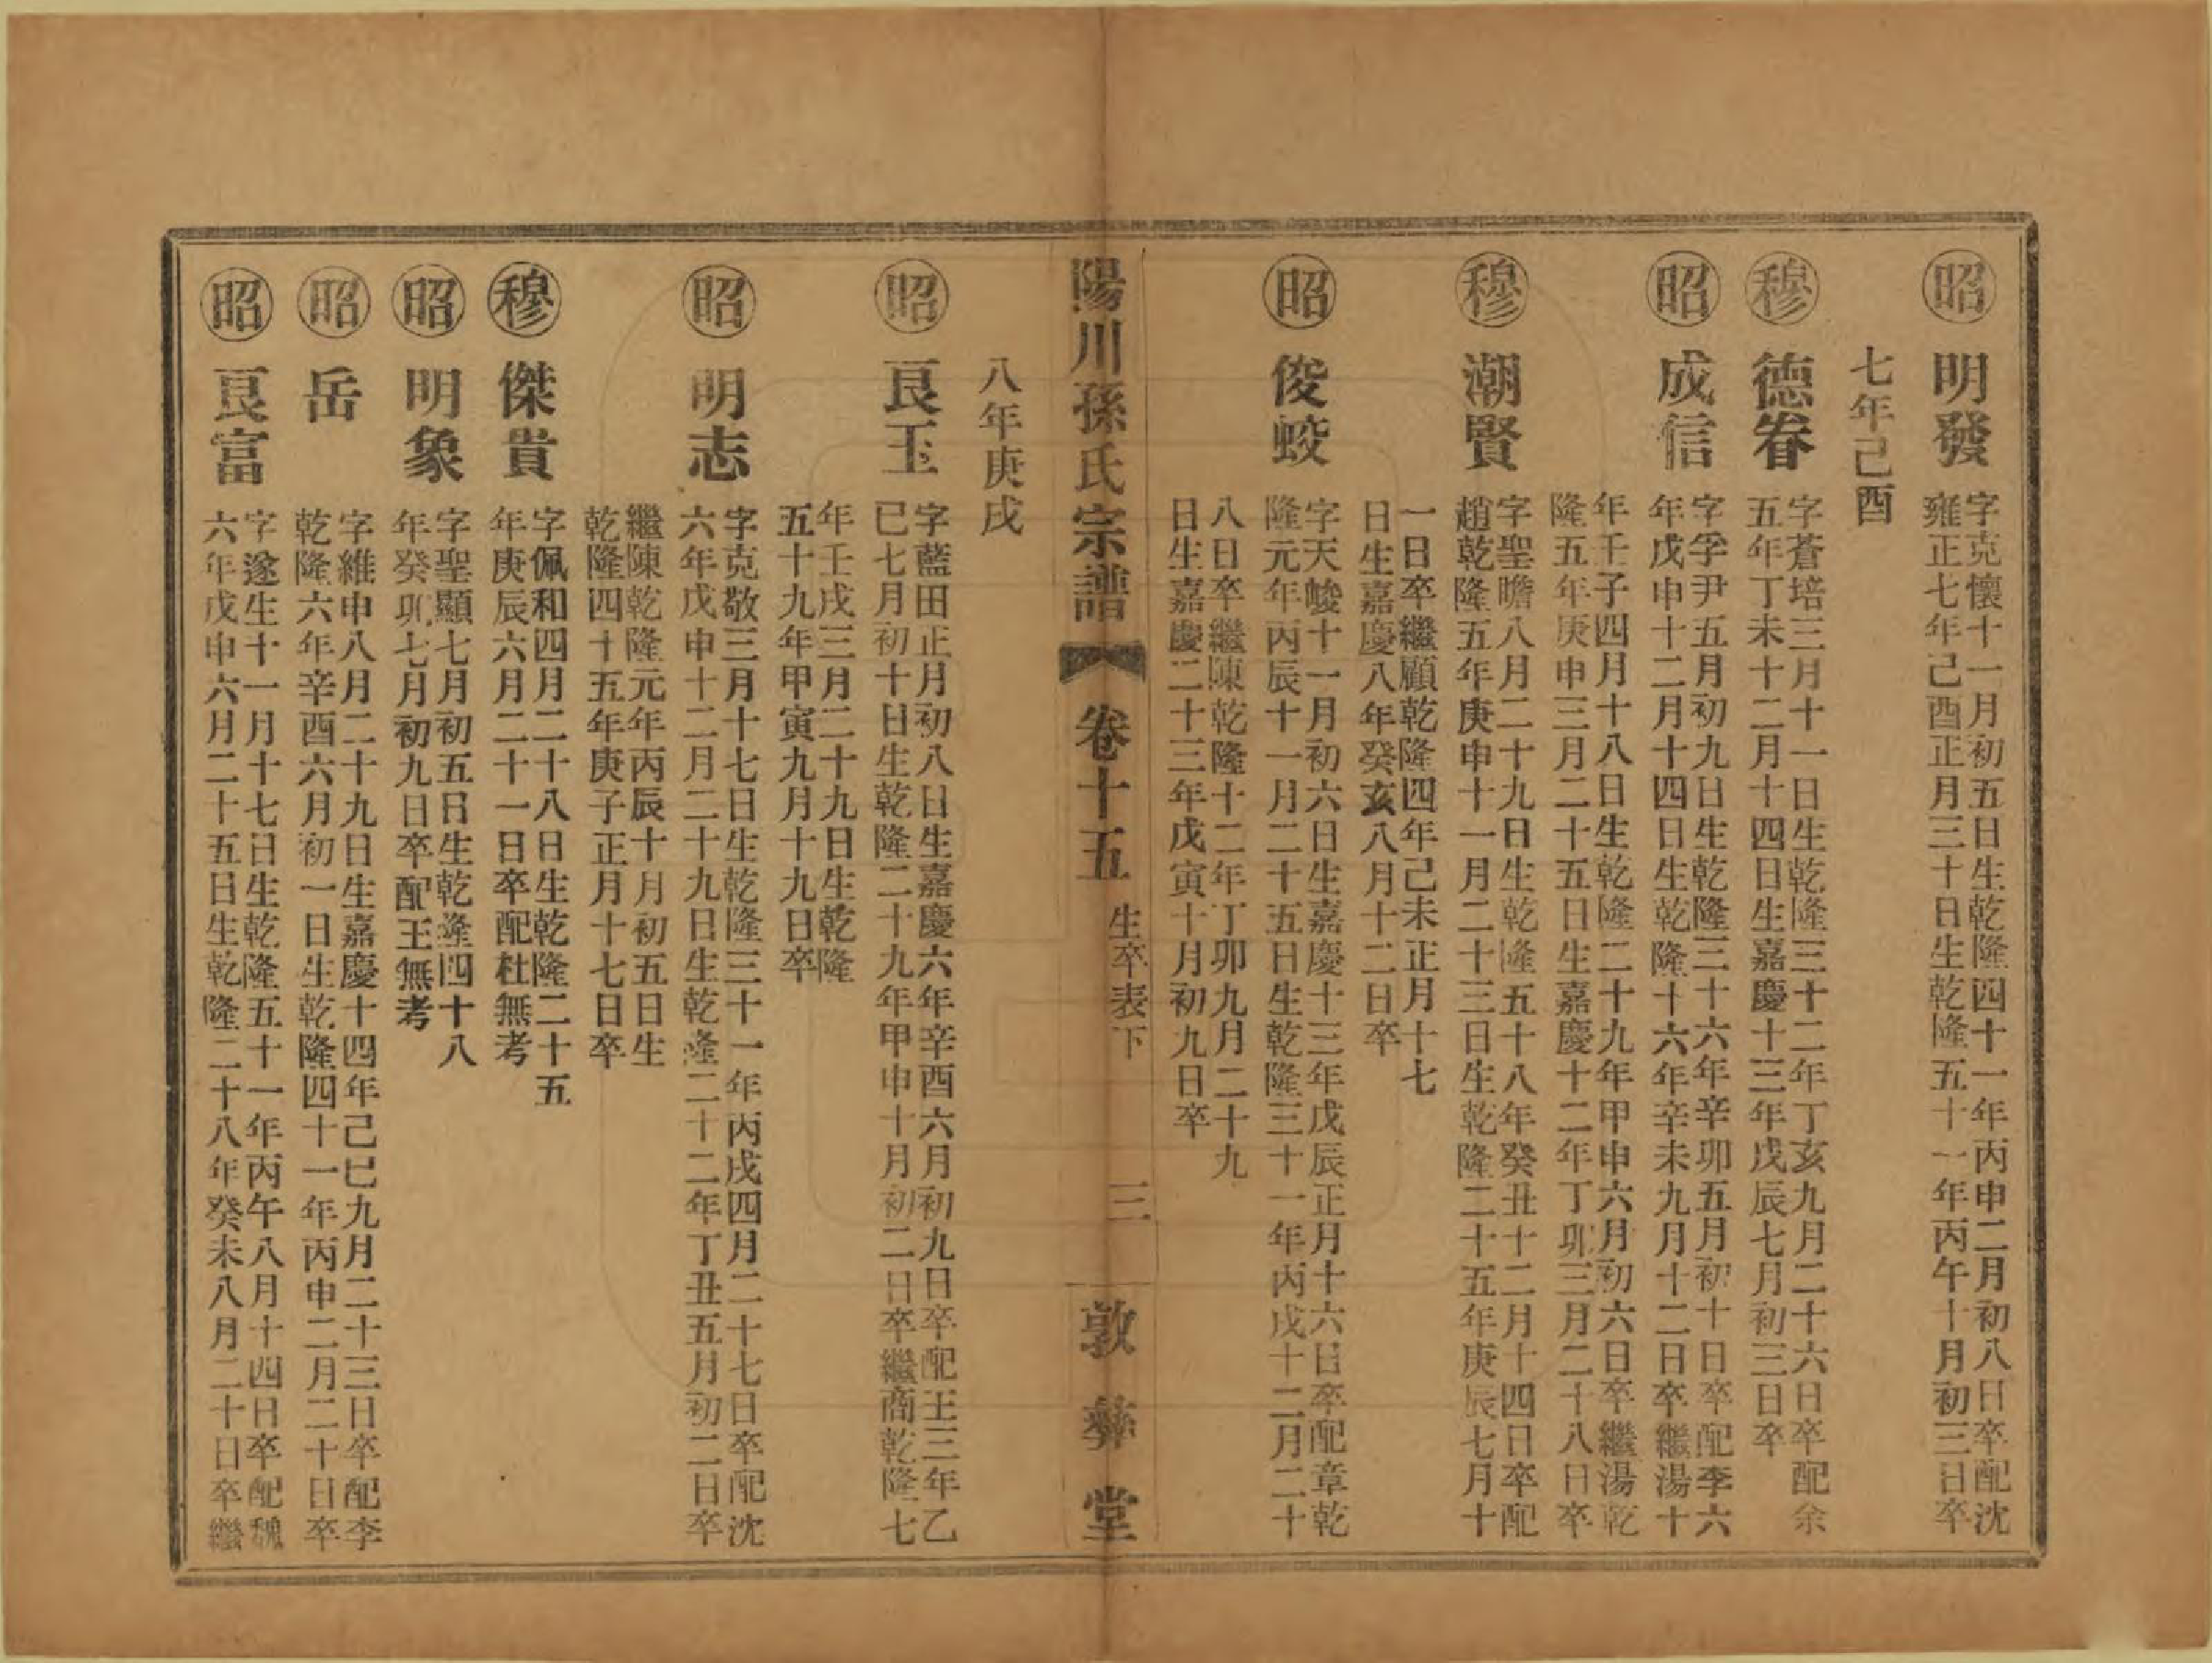 昭 明發
字克懷十一月初五日生乾隆四十一年丙申二月初八日卒配沈
雍正七年己酉正月三十日生乾隆五十一年丙午十月初三日卒
七年己酉
穆 德眷
字蒼培三月十一日生乾隆三十二年丁亥九月二十六日卒配余
五年丁未十二月十四日生嘉慶十三年戊辰七月初三日卒
昭 成信
字孚尹五月初九日生乾隆三十六年辛卯五月初十日卒配李六
年戊申十二月十四日生乾隆十六年辛未九月十二日卒繼湯十
年壬子四月十八日生乾隆二十九年甲申六月初六日卒繼湯乾
隆五年庚申三月二十五日生嘉慶十二年丁卯三月二十八日卒
穆 潮賢
字聖瞻八月二十九日生乾隆五十八年癸丑十二月十四日卒配
趙乾隆五年庚申十一月二十三日生乾隆二十五年庚辰七月十
一日卒繼顧乾隆四年己未正月十七
日生嘉慶八年癸亥八月十二日卒
昭 俊蛟
字天峻十一月初六日生嘉慶十三年戊辰正月十六日卒配章乾
隆元年丙辰十一月二十五日生乾隆三十一年丙戌十二月二十
八日卒繼陳乾隆十二年丁卯九月二十九
日生嘉慶二十三年戊寅十月初九日卒
陽川孫氏宗譜 卷十五 生卒表下 三 敦彝堂
八年庚戌
昭 艮玉
字藍田正月初八日生嘉慶六年辛酉六月初九日卒配王三年乙
巳七月初十日生乾隆二十九年甲申十月初二日卒繼商乾隆七
年壬戌三月二十九日生乾隆
五十九年甲寅九月十九日卒
昭 明志
字克敬三月十七日生乾隆三十一年丙戌四月二十七日卒配沈
六年戊申十二月二十九日生乾隆二十二年丁丑五月初二日卒
繼陳乾隆元年丙辰十月初五日生
乾隆四十五年庚子正月十七日卒
穆 傑貴
字佩和四月二十八日生乾隆二十五
年庚辰六月二十一日卒配杜無考
昭 明象
字聖顯七月初五日生乾隆四十八
年癸卯七月初九日卒配王無考
昭 岳
字維申八月二十九日生嘉慶十四年己巳九月二十三日卒配李
乾隆六年辛酉六月初一日生乾隆四十一年丙申二月二十日卒
昭 艮富
字邃生十一月十七日生乾隆五十一年丙午八月十四日卒配魏
六年戊申六月二十五日生乾隆二十八年癸未八月二十日卒繼